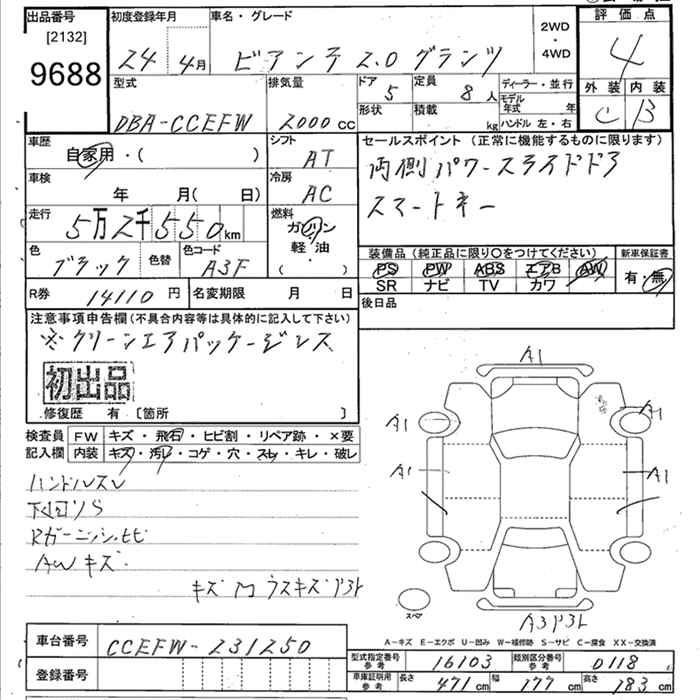 出品番号
[2132]
9688
初度登録年月
24 4月
車名・グレード
ビアンテ 2.0 グランツ
2WD
・
4WD
評価点
4
外装 内装
C B
型式
DBA-CCEFW
排気量
2000cc
ドア
5
定員
8人
形状
積載
kg
ディーラー・並行
モデル年式 年
ハンドル 左・右
車歴
自家用・( )
車検
年 月( 日)
走行
5万2千550km
色
ブラック
色替
色コード
A3F
シフト
AT
冷房
AC
燃料
ガソリン
軽・油
( )
セールスポイント (正常に機能するものに限ります)
両側パワースライドドア
スマートキー
装備品(純正品に限り○をつけてください)
PS PW ABS エアB AW
SR ナビ TV カワ
新車保証書
有・無
後日品
R券 14110円
名変期限 月 日
注意事項申告欄(不具合内容等は具体的に記入して下さい)
※クリーンエアパッケージレス
初出品
修復歴 有 〔箇所 〕
検査員
記入欄
FW キズ・飛石・ヒビ割・リペア跡・×要
内装 キズ・汚レ・コゲ・穴・スレ・キレ・破レ
ハンドルスレ
下回りS
AWキズ
A1
A1
A1
A1
A1
スペア
A-キズ E-エクボ U-凹み W-補修跡 S-サビ C-腐食 XX-交換済
車台番号 CCEFW-231250
登録番号
型式指定番号
参考
16103
類別区分番号
参考
0118
車庫証明用
参考
長さ 471cm 幅 177cm 高さ 183cm